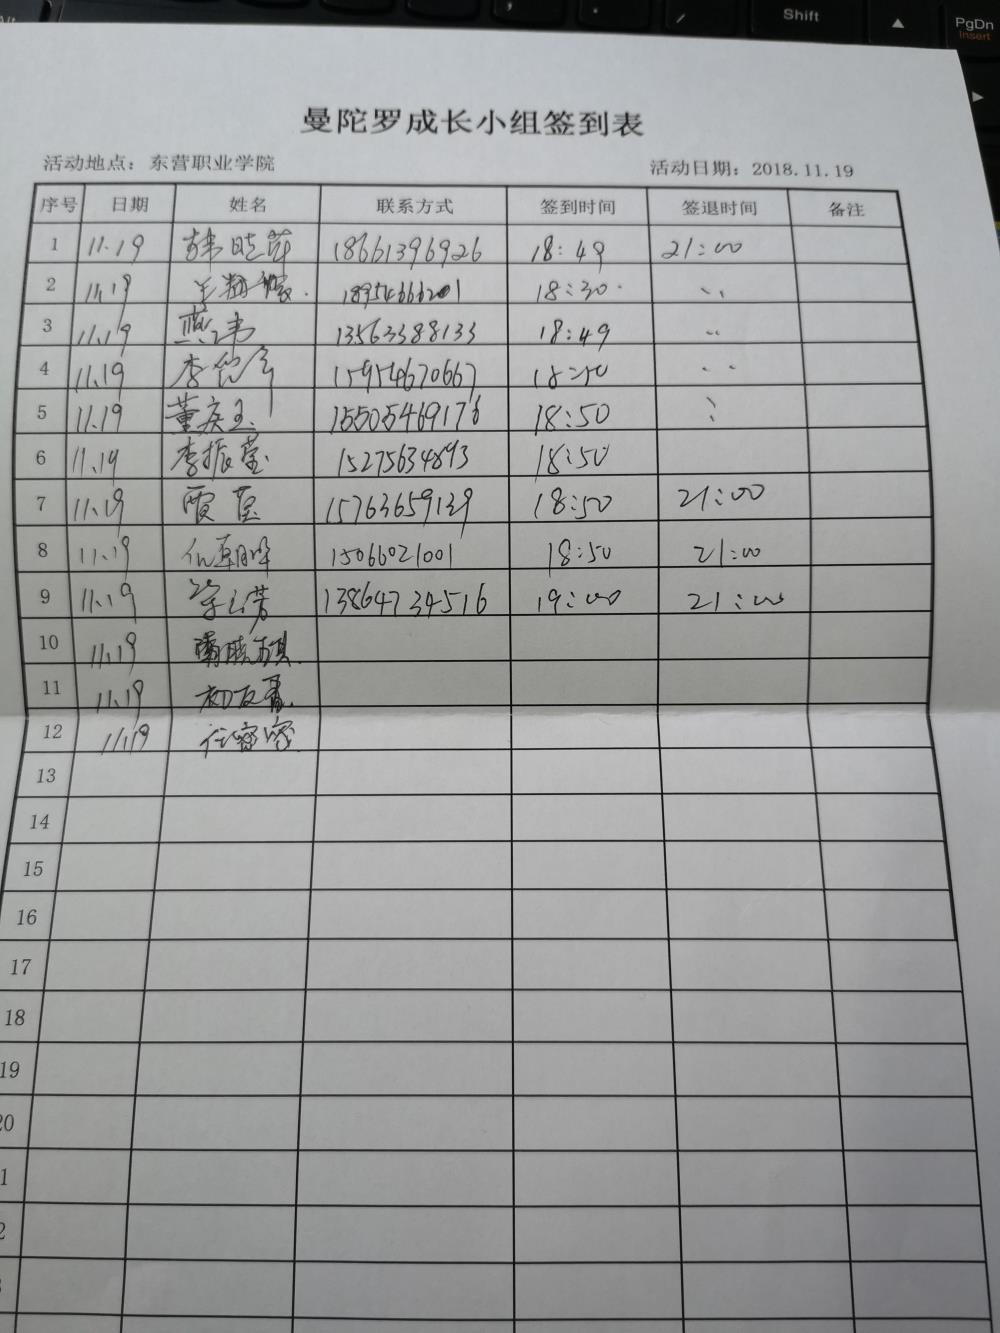 Shift
PgDn
Insert
曼陀罗成长小组签到表
活动地点：东营职业学院 活动日期：2018.11.19
序号 日期 姓名 联系方式 签到时间 签退时间 备注
1 11.19 韩晓萍 18661396926 18:49 21:00
2 11.19 王 18:30 〃
3 11.19 燕讳 13563388133 18:49 〃
4 11.19 李 15954670667 18:50 〃
5 11.19 董庆玉 15505469176 18:50 〃
6 11.19 李振莹 15275634893 18:50
7 11.19 贾莹 15763659139 18:50 21:00
8 11.19 15066021001 18:50 21:00
9 11.19 芳 13864734516 19:00 21:00
10 11.19
11 11.19 初友香
12 11.19 任密密
13
14
15
16
17
18
19
20